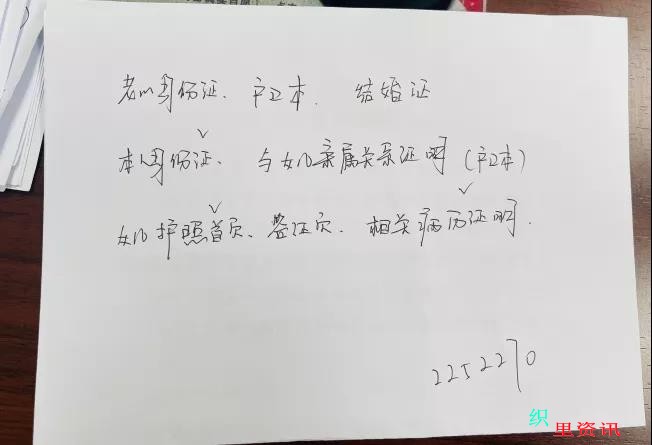 老公身份证、户口本、结婚证
本人身份证、与女儿亲属关系证明(户口本)
女儿护照首页、签证页、相关病历证明.
2252270
织
里资讯